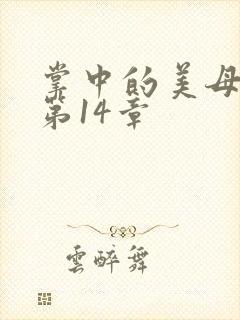 掌中的美母
第14章
雲醉舞